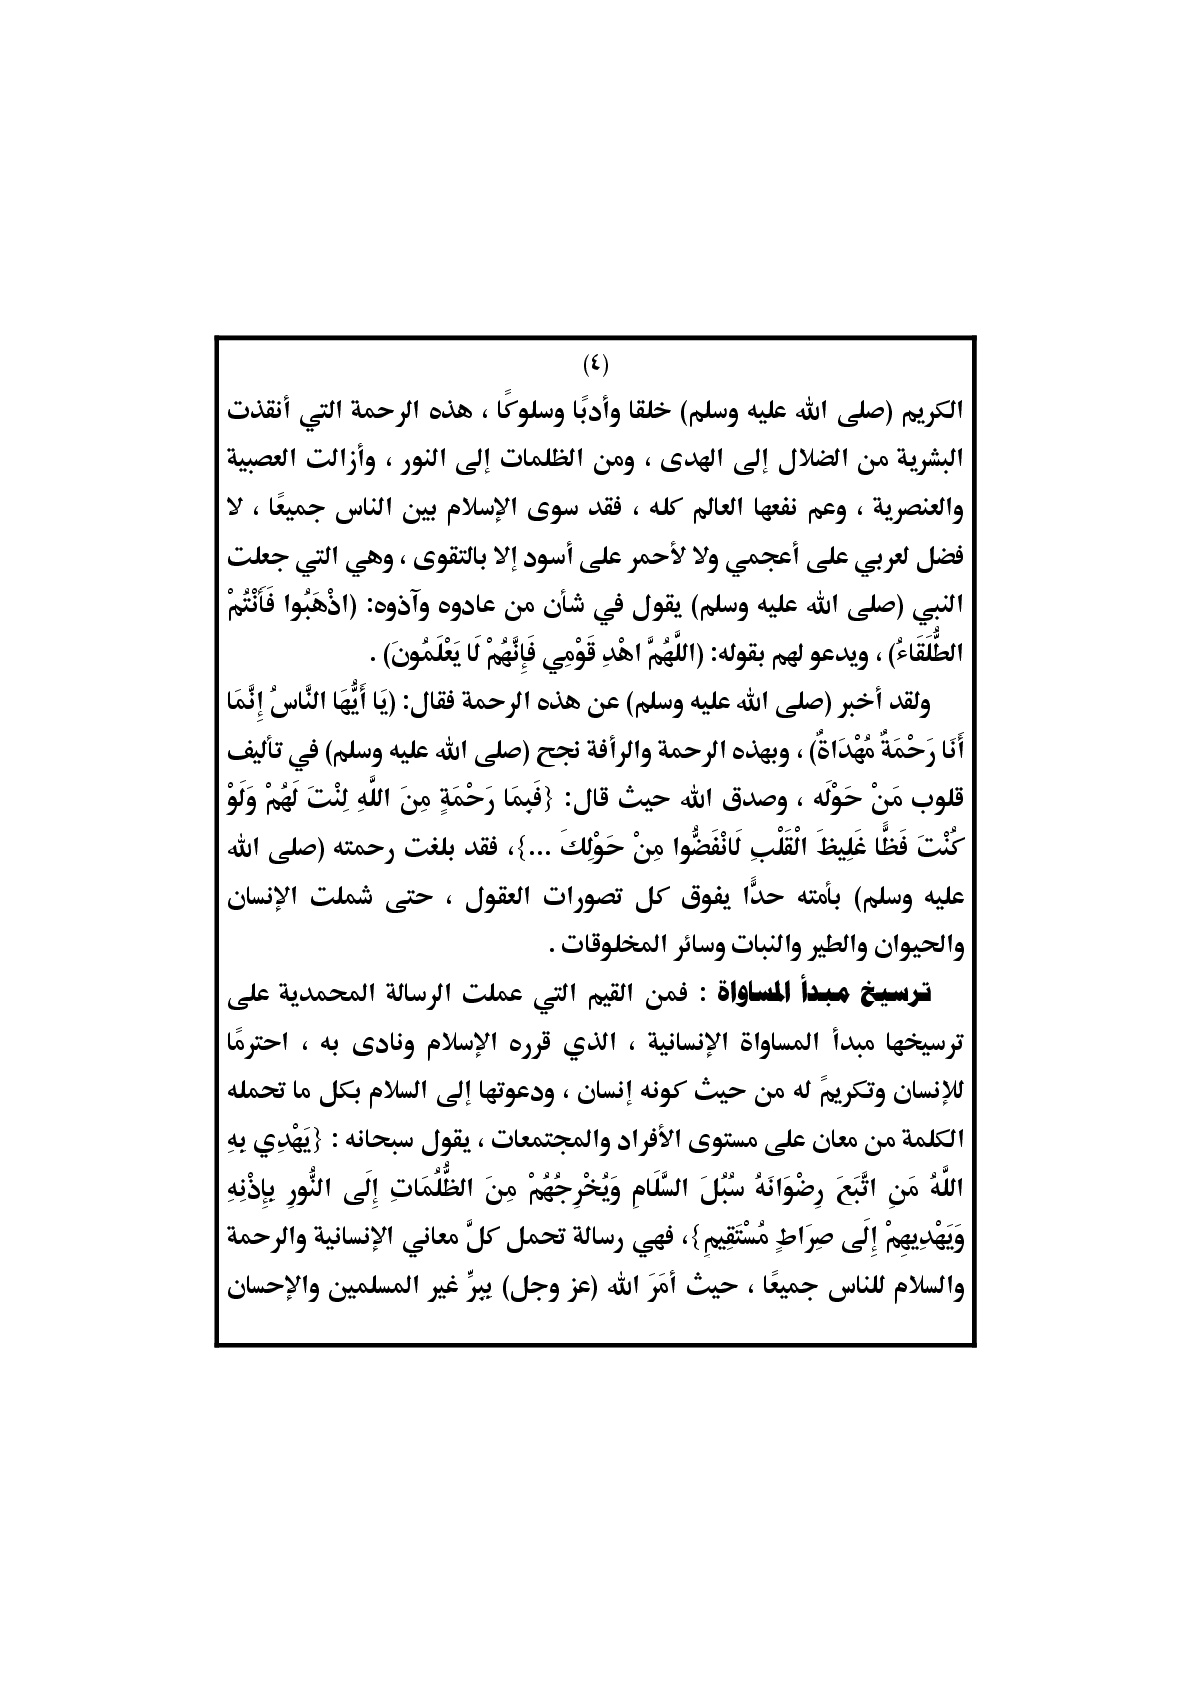 (٤)
الكريم (صلى الله عليه وسلم) خلقا وأدبًا وسلوكًا ، هذه الرحمة التي أنقذت
البشرية من الضلال إلى الهدى ، ومن الظلمات إلى النور ، وأزالت العصبية
والعنصرية ، وعم نفعها العالم كله ، فقد سوى الإسلام بين الناس جميعًا ، لا
فضل لعربي على أعجمي ولا لأحمر على أسود إلا بالتقوى ، وهي التي جعلت
النبي (صلى الله عليه وسلم) يقول في شأن من عادوه وآذوه: (اذْهَبُوا فَأَنْتُمْ
الطُّلَقَاءُ) ، ويدعو لهم بقوله: (اللَّهُمَّ اهْدِ قَوْمِي فَإِنَّهُمْ لَا يَعْلَمُونَ) .
ولقد أخبر (صلى الله عليه وسلم) عن هذه الرحمة فقال: (يَا أَيُّهَا النَّاسُ إِنَّمَا
أَنَا رَحْمَةٌ مُهْدَاةٌ) ، وبهذه الرحمة والرأفة نجح (صلى الله عليه وسلم) في تأليف
قلوب مَنْ حَوْلَه ، وصدق الله حيث قال: {فَبِمَا رَحْمَةٍ مِنَ اللَّهِ لِنْتَ لَهُمْ وَلَوْ
كُنْتَ فَظًّا غَلِيظَ الْقَلْبِ لَانْفَضُّوا مِنْ حَوْلِكَ ...}، فقد بلغت رحمته (صلى الله
عليه وسلم) بأمته حدًّا يفوق كل تصورات العقول ، حتى شملت الإنسان
والحيوان والطير والنبات وسائر المخلوقات .
ترسيخ مبدأ المساواة : فمن القيم التي عملت الرسالة المحمدية على
ترسيخها مبدأ المساواة الإنسانية ، الذي قرره الإسلام ونادى به ، احترمًا
للإنسان وتكريمً له من حيث كونه إنسان ، ودعوتها إلى السلام بكل ما تحمله
الكلمة من معان على مستوى الأفراد والمجتمعات ، يقول سبحانه : {يَهْدِي بِهِ
اللَّهُ مَنِ اتَّبَعَ رِضْوَانَهُ سُبُلَ السَّلَامِ وَيُخْرِجُهُمْ مِنَ الظُّلُمَاتِ إِلَى النُّورِ بِإِذْنِهِ
وَيَهْدِيهِمْ إِلَى صِرَاطٍ مُسْتَقِيمٍ}، فهي رسالة تحمل كلَّ معاني الإنسانية والرحمة
والسلام للناس جميعًا ، حيث أمَرَ الله (عز وجل) بِبِرِّ غير المسلمين والإحسان